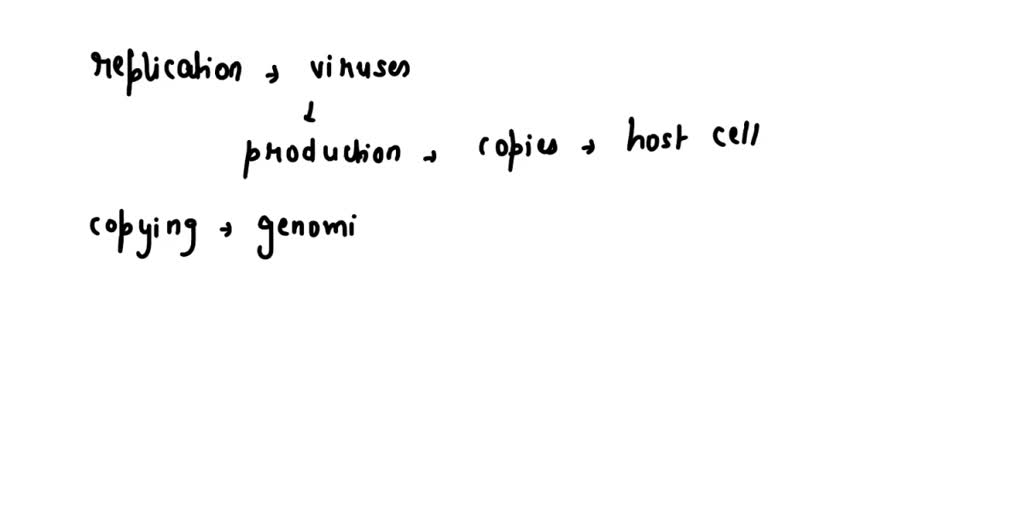 replication → viruses
↓
production → copies → host cell
copying → genomi